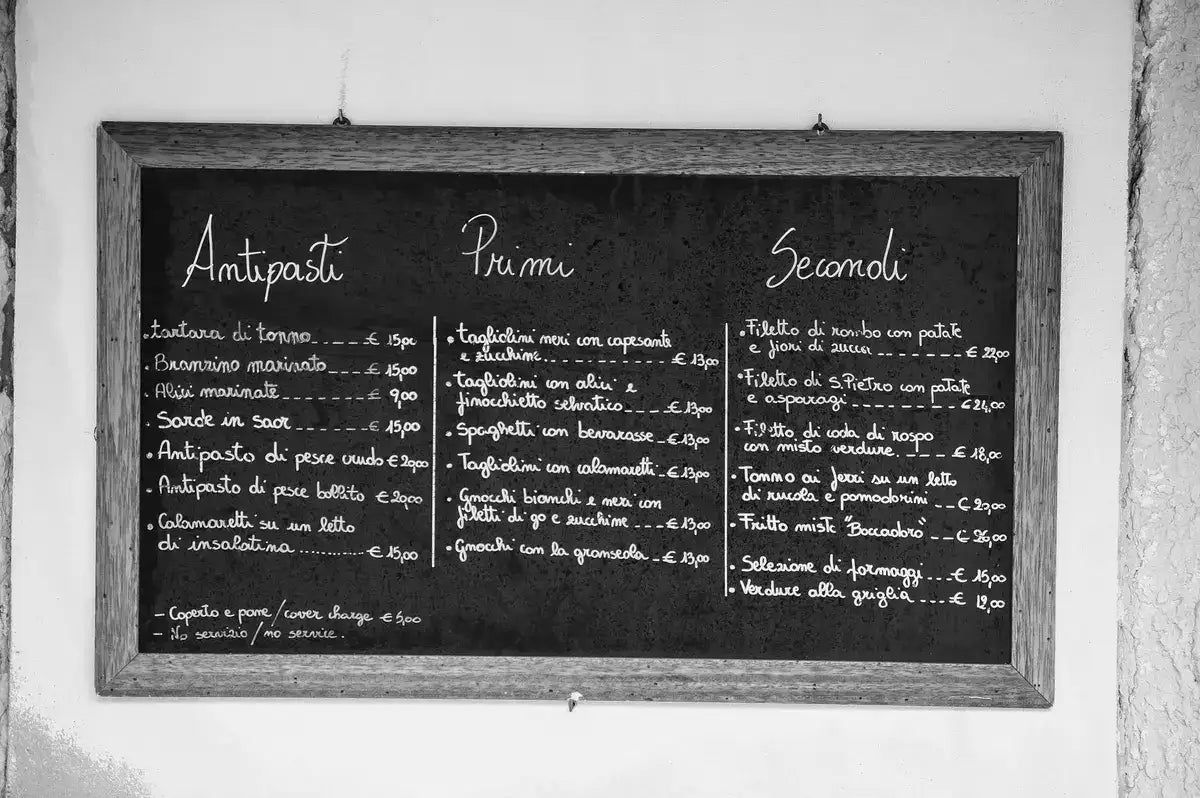 Antipasti
tartara di tonno_____€ 15,00
Branzino marinato____€ 15,00
Alici marinate________€ 9,00
Sarde in saor________€ 15,00
Antipasto di pesce crudo € 20,00
Antipasto di pesce bollito € 20,00
Calamaretti su un letto
di insalatina...........€ 15,00
- Coperto e pane / cover charge € 5,00
- No servizio / no service.
Primi
Tagliolini neri con capesante
e zucchine___________€ 13,00
Tagliolini con alici e
finocchietto selvatico____€ 13,00
Spaghetti con bevarasse_€ 13,00
Tagliolini con calamaretti_€ 13,00
Gnocchi bianchi e neri con
filetti di go e zucchine___€ 13,00
Gnocchi con la granseola_€ 13,00
Secondi
Filetto di rombo con patate
e fiori di zucca________€ 22,00
Filetto di S.Pietro con patate
e asparagi__________€ 24,00
Filetto di coda di rospo
con misto verdure.____€ 18,00
Tonno ai ferri su un letto
di rucola e pomodorini__€
Fritto misto "Boccadoro"__€ 26,00
Selezione di formaggi...€ 15,00
Verdure alla griglia....€ 12,00